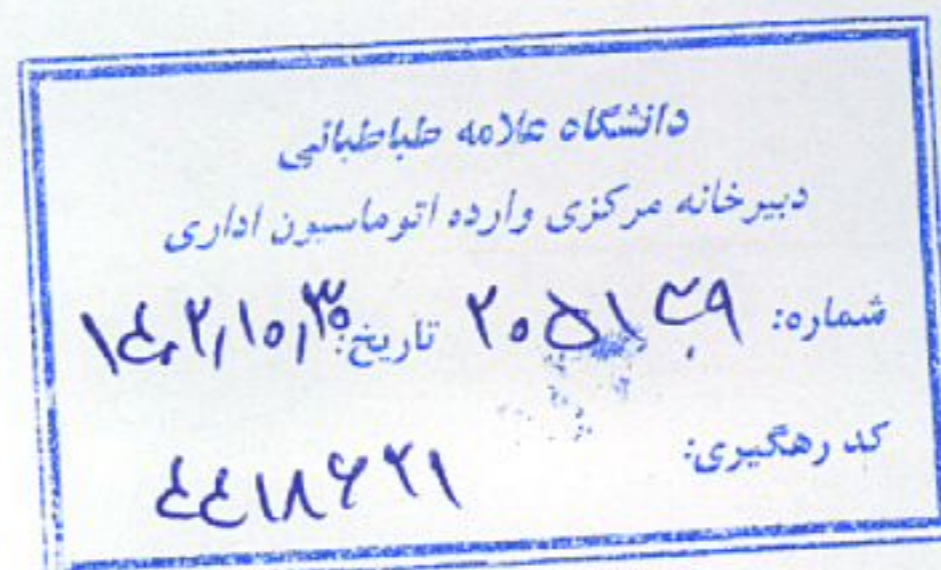 دانشگاه علامه طباطبائی
دبیرخانه مرکزی وارده اتوماسیون اداری
شماره: تاریخ: ۱۴۰۲/۱۰/۳۰
کد رهگیری: ۴۴۱۸۶۲۱